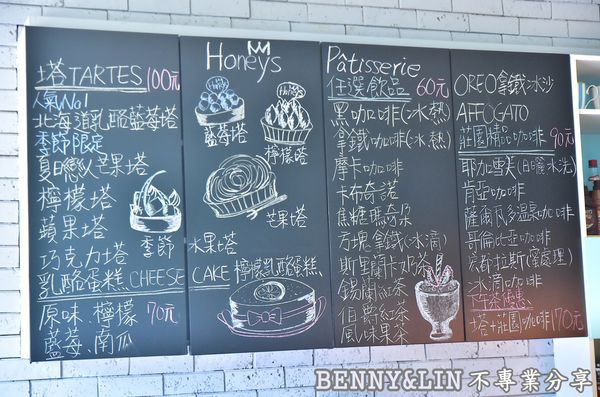 塔TARTES 100元
人氣No1
北海道乳酪藍莓塔
季節限定
夏日戀人芒果塔
檸檬塔
蘋果塔
巧克力塔
乳酪蛋糕CHEESE CAKE
原味、檸檬 70元
藍莓、南瓜
Honeys
藍莓塔
檸檬塔
芒果塔
季節水果塔
檸檬乳酪蛋糕
Pâtisserie
任選飲品 60元
黑咖啡(冰熱)
拿鐵咖啡(冰熱)
摩卡咖啡
卡布奇諾
焦糖瑪奇朵
方塊拿鐵(冰滴)
斯里蘭卡奶茶
錫蘭紅茶
伯爵紅茶
風味果茶
OREO拿鐵冰沙
AFFOGATO
莊園精品咖啡 90元
耶加雪菲(日曬水洗)
肯亞咖啡
薩爾瓦多溫泉咖啡
哥倫比亞咖啡
宏都拉斯(蜜處理)
冰滴咖啡
下午茶優惠
塔+莊園咖啡170元
BENNY&LIN 不專業分享